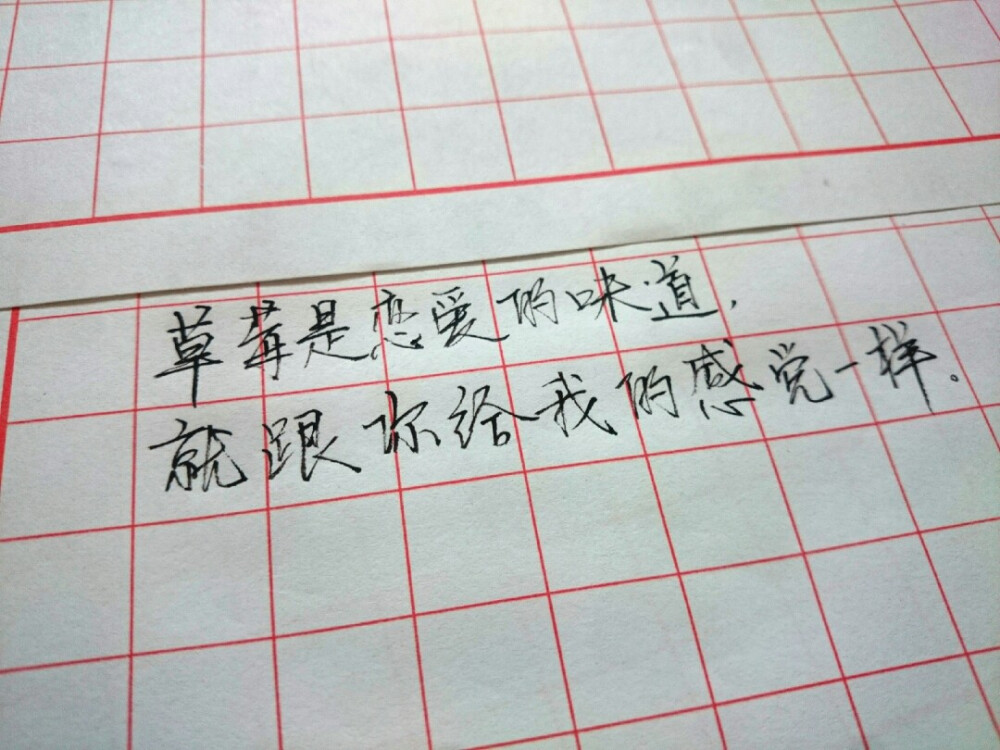 草莓是恋爱的味道，
就跟你给我的感觉一样。